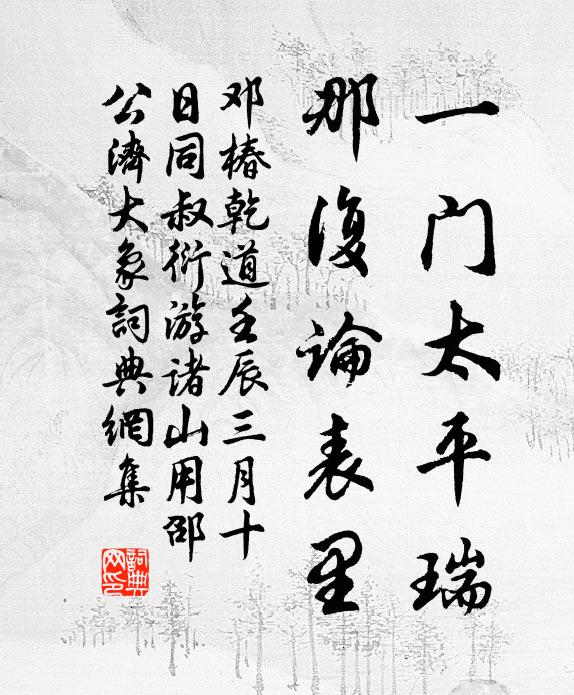 一门太平瑞
那復論表里
邓椿乾道壬辰三月十
日同叔衍游诸山用邵
公濟大象詞典網集
詞典網印